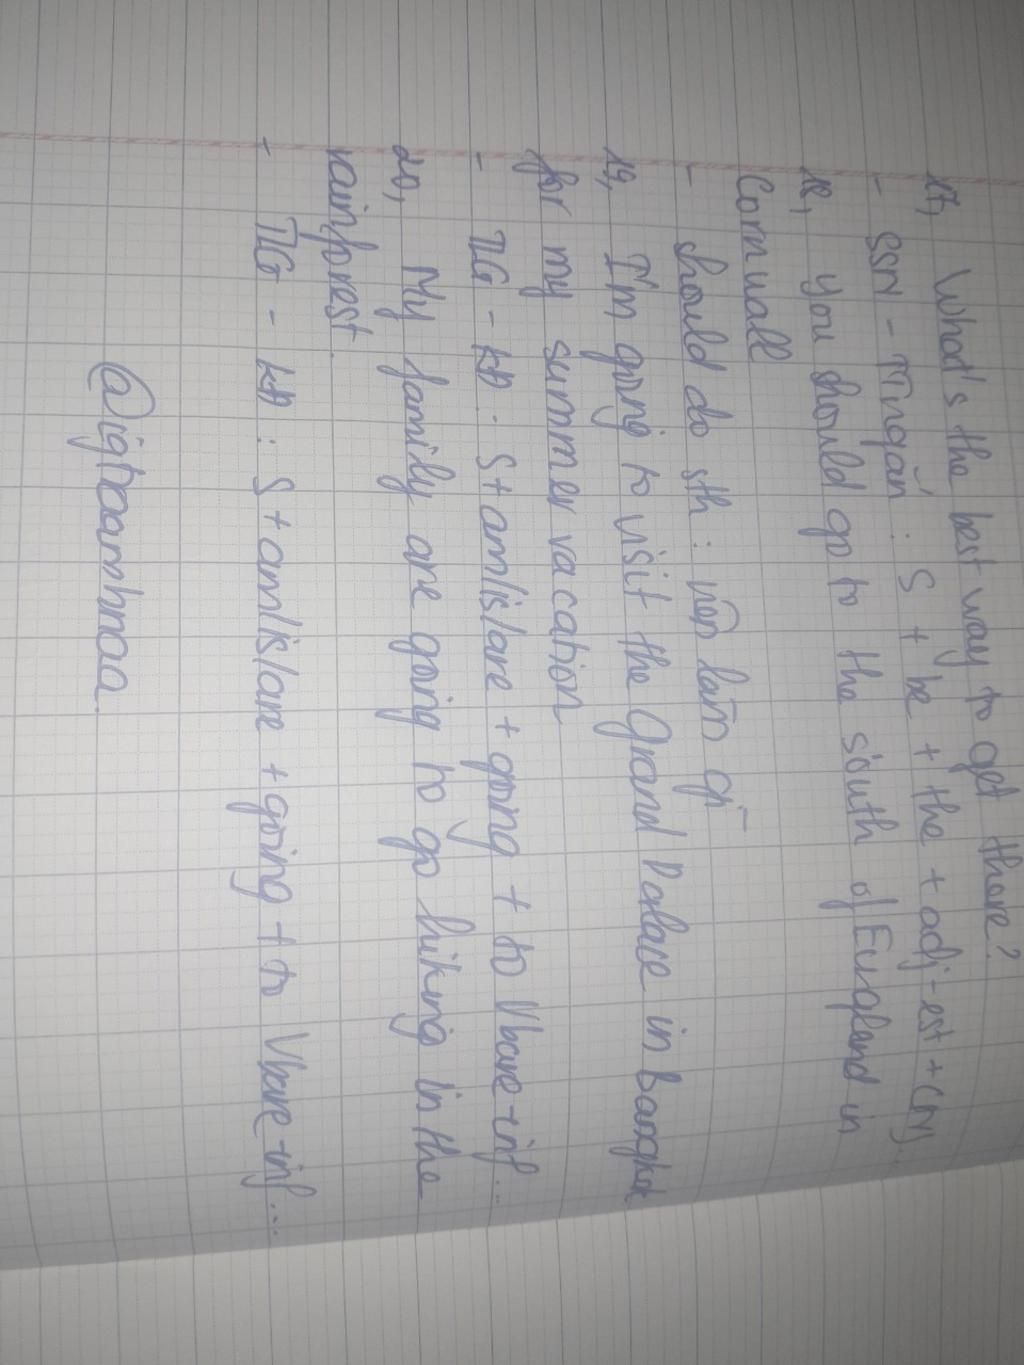 17, What's the best way to get there?
- SSN - TT ngắn : S + be + the + adj-est + (N)...
18, you should go to the south of England in
Cornwall
- should do sth : nên làm gì
19, I'm going to visit the Grand Palace in bangkok
for my summer vacation
- TLG - kđ : S + am/is/are + going + to Vbare-inf...
20, My family are going to go hiking in the
rainforest.
- TLG - kđ : S + am/is/are + going + to Vbare-inf...
@igtoamhnaa.